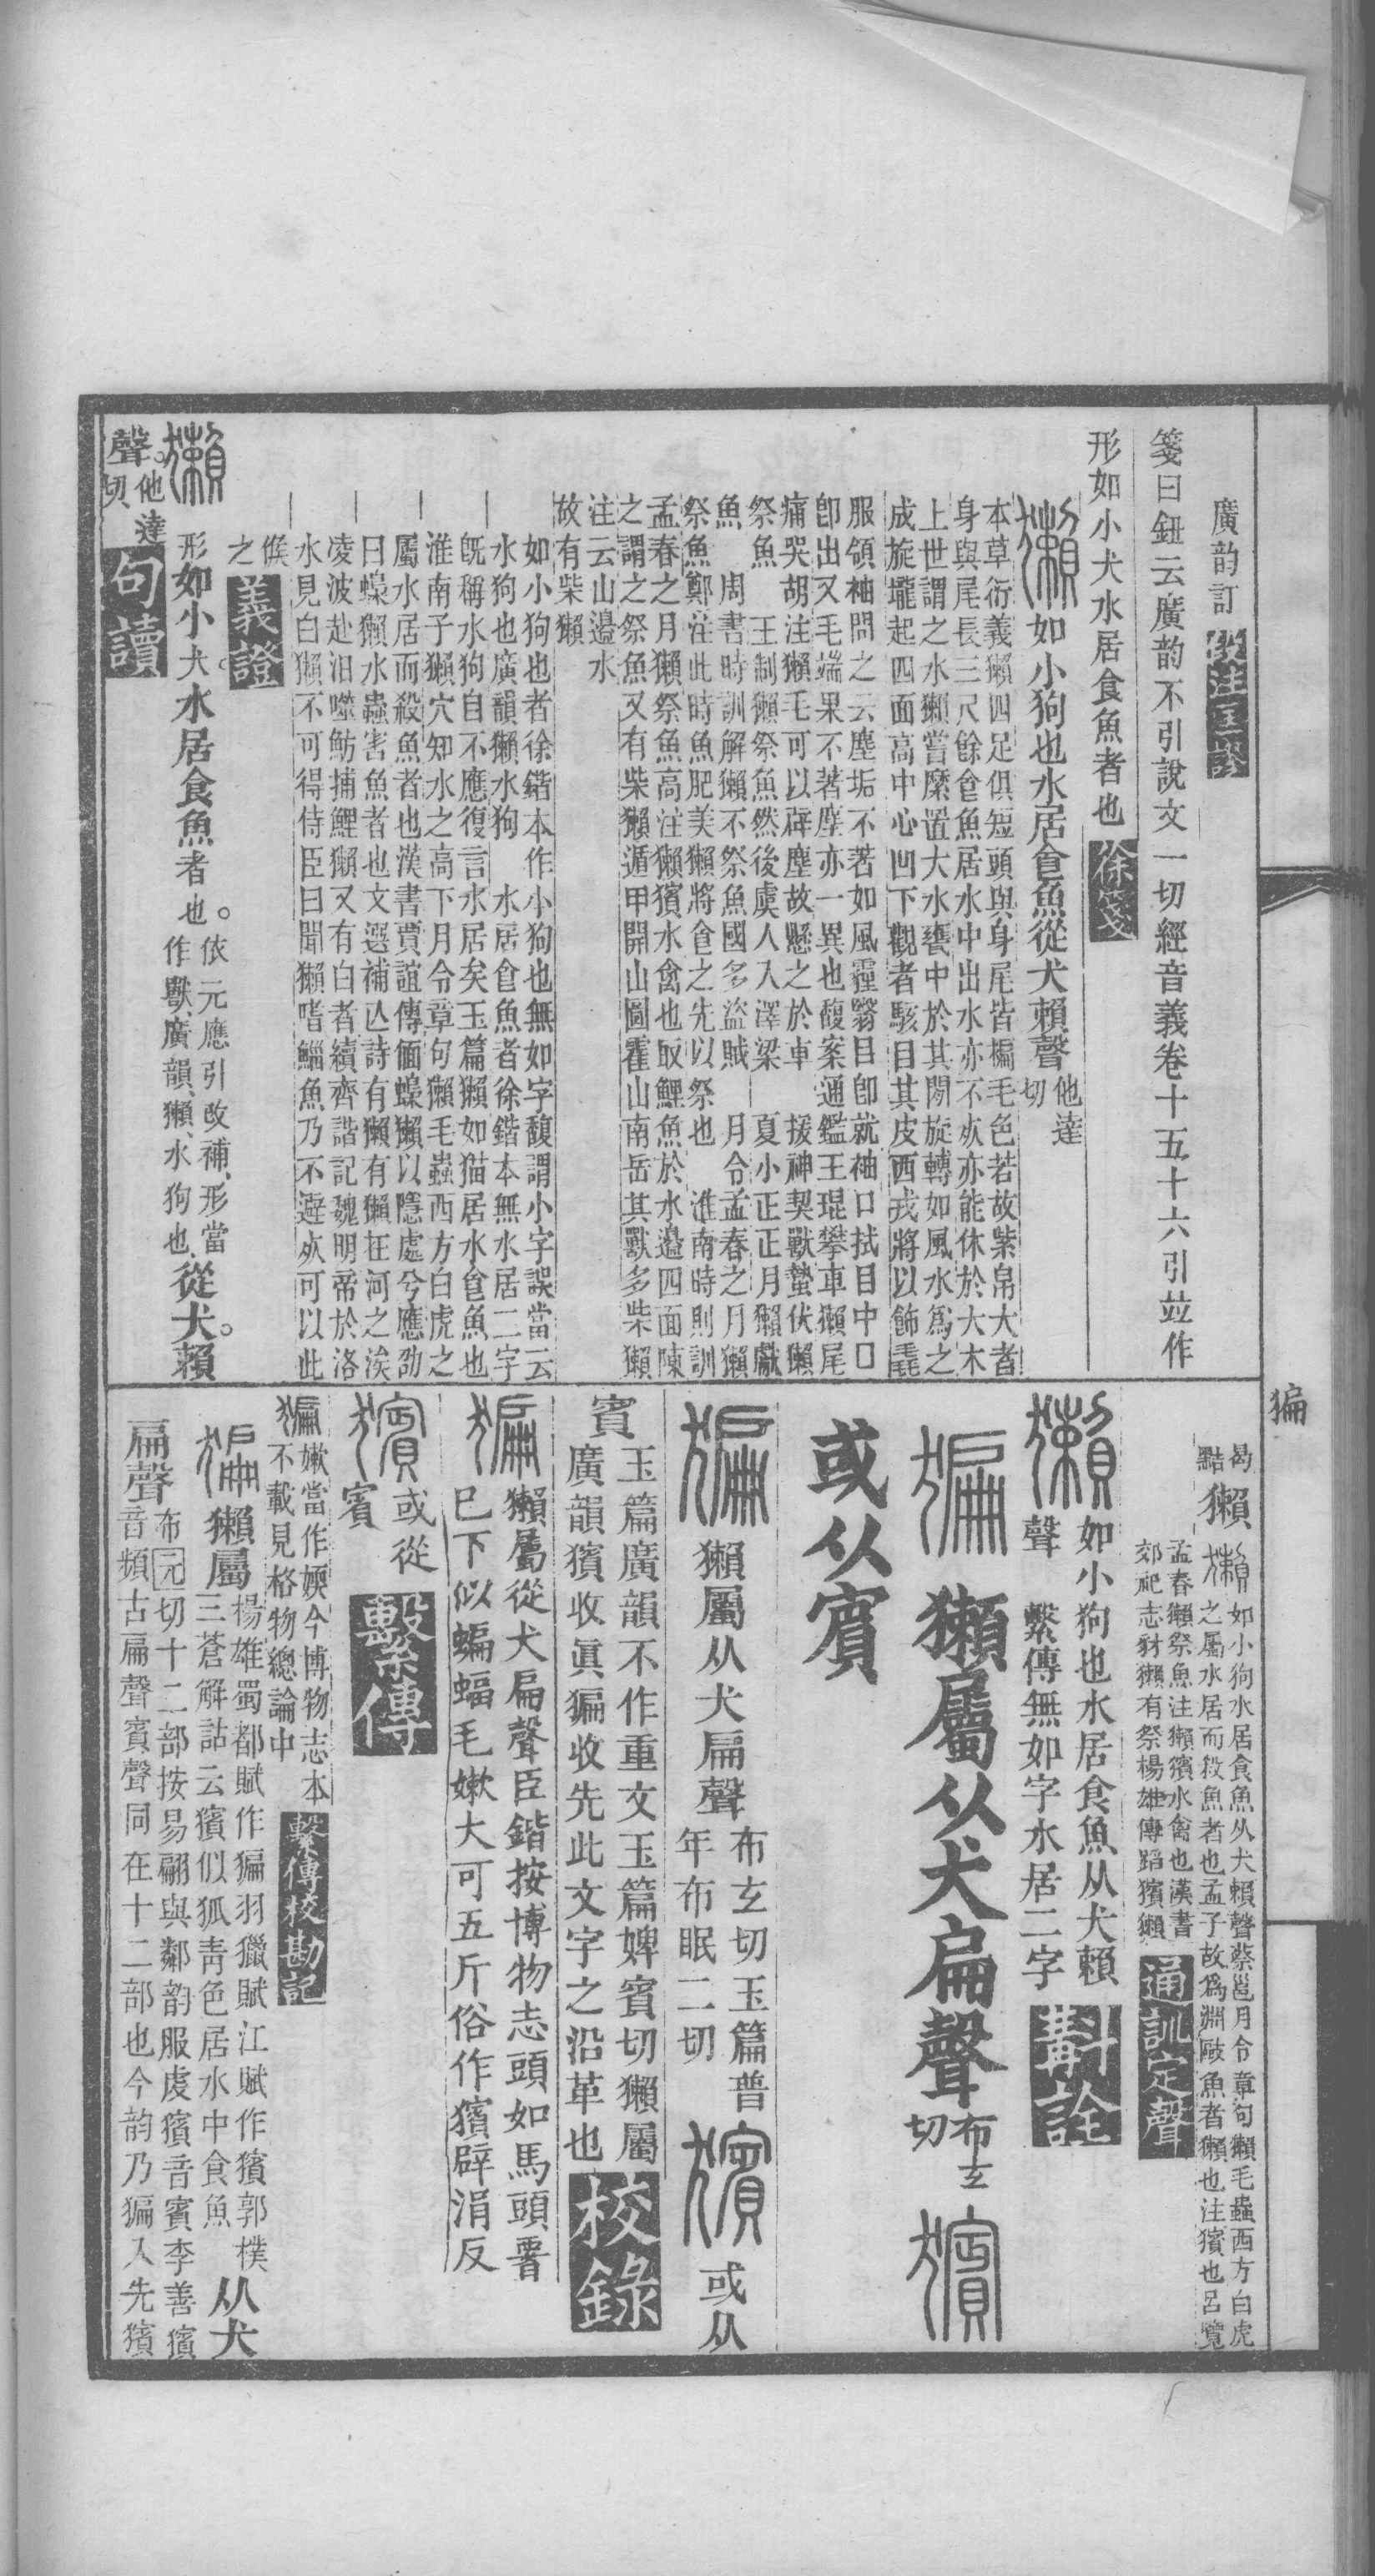 廣韵訂 段注匡謬
箋曰鈕云廣韵不引說文一切經音義卷十五十六引竝作
形如小犬水居食魚者也 徐箋
獺如小狗也水居食魚從犬賴聲他達切
本草衍義獺四足俱短頭與身尾皆褊毛色若故紫帛大者
身與尾長三尺餘食魚居水中出水亦不死亦能休於大木
上世謂之水獺嘗縻置大水甕中於其閒旋轉如風水爲之
成旋壠起四面高中心凹下觀者駭目其皮西戎將以飾毳
服領袖問之云塵垢不著如風霾翳目卽就袖口拭目中囗
卽出又毛端果不著塵亦一異也馥案通鑑王琨攀車獺尾
痛哭胡注獺毛可以辟塵故懸之於車 援神契獸蟄伏獺
祭魚 王制獺祭魚然後虞人入澤梁 夏小正正月獺獻
魚 周書時訓解獺不祭魚國多盜賊 月令孟春之月獺
祭魚鄭注此時魚肥美獺將食之先以祭也 淮南時則訓
孟春之月獺祭魚高注獺獱水禽也取鯉魚於水邉四面陳
之謂之祭魚又有柴獺遁甲開山圖霍山南岳其獸多柴獺
注云山邉水
故有柴獺
如小狗也者徐鍇本作小狗也無如字馥謂小字誤當云
水狗也廣韻獺水狗 水居食魚者徐鍇本無水居二字
旣稱水狗自不應復言水居矣玉篇獺如猫居水食魚也
淮南子獺穴知水之高下月令章句獺毛蟲西方白虎之
屬水居而殺魚者也漢書賈誼傳偭蟂獺以隱處兮應劭
曰蟂獺水蟲害魚者也文選補亾詩有獺有獺在河之涘
凌波赴汨噬魴捕鯉獺又有白者續齊諧記魏明帝於洛
水見白獺不可得侍臣曰聞獺嗜鯔魚乃不避死可以此
候之 義證
獺形如小犬水居食魚者也。依元應引改補、形當作獸、廣韻、獺、水狗也、從犬。賴
聲。他達切 句讀
猵
曷 點 獺 獺如小狗水居食魚从犬賴聲蔡邕月令章句獺毛蟲西方白虎
之屬水居而殺魚者也孟子故爲淵敺魚者獺也注獱也呂覽
孟春獺祭魚注獺獱水禽也漢書
郊祀志豺獺有祭楊雄傳蹈獱獺 通訓定聲
獺如小狗也水居食魚从犬賴
聲 繫傳無如字水居二字 斠詮
猵 獺屬从犬扁聲布玄切 獱
或从賓
猵 獺屬从犬扁聲布玄切玉篇普年布眠二切 獱 或从
賓 玉篇廣韻不作重文玉篇婢賓切獺屬
廣韻獱收眞猵收先此文字之沿革也 校錄
猵獺屬從犬扁聲臣鍇按博物志頭如馬頭署
巳下似蝙蝠毛嫰大可五斤俗作獱辟涓反
獱或從賓 繫傳
猵 嫰當作媆今博物志本
不載見格物總論中 繫傳校勘記
猵獺屬楊雄蜀都賦作猵羽獵賦江賦作獱郭樸
三蒼解詁云獱似狐靑色居水中食魚 从犬
扁聲布[元]切十二部按易翩與鄰韵服虔獱音賓李善獱
音頻古扁聲賓聲同在十二部也今韵乃猵入先獱